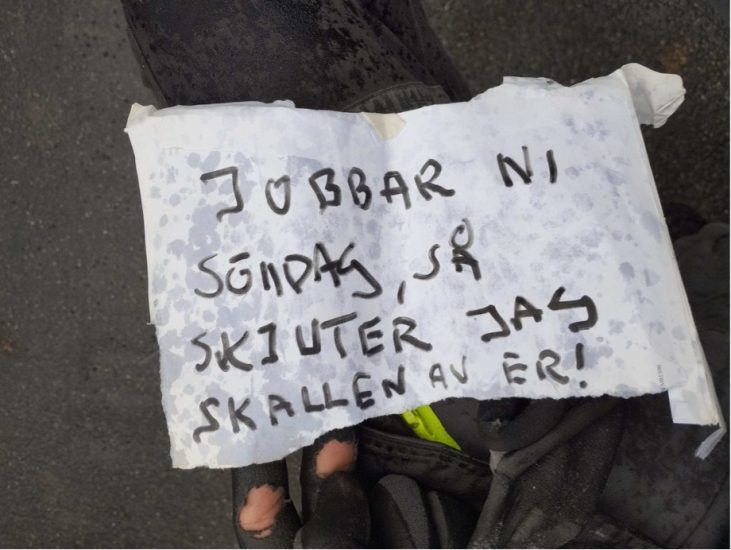 JOBBAR NI
SÖNDAG, SÅ
SKJUTER JAG
SKALLEN AV ER!